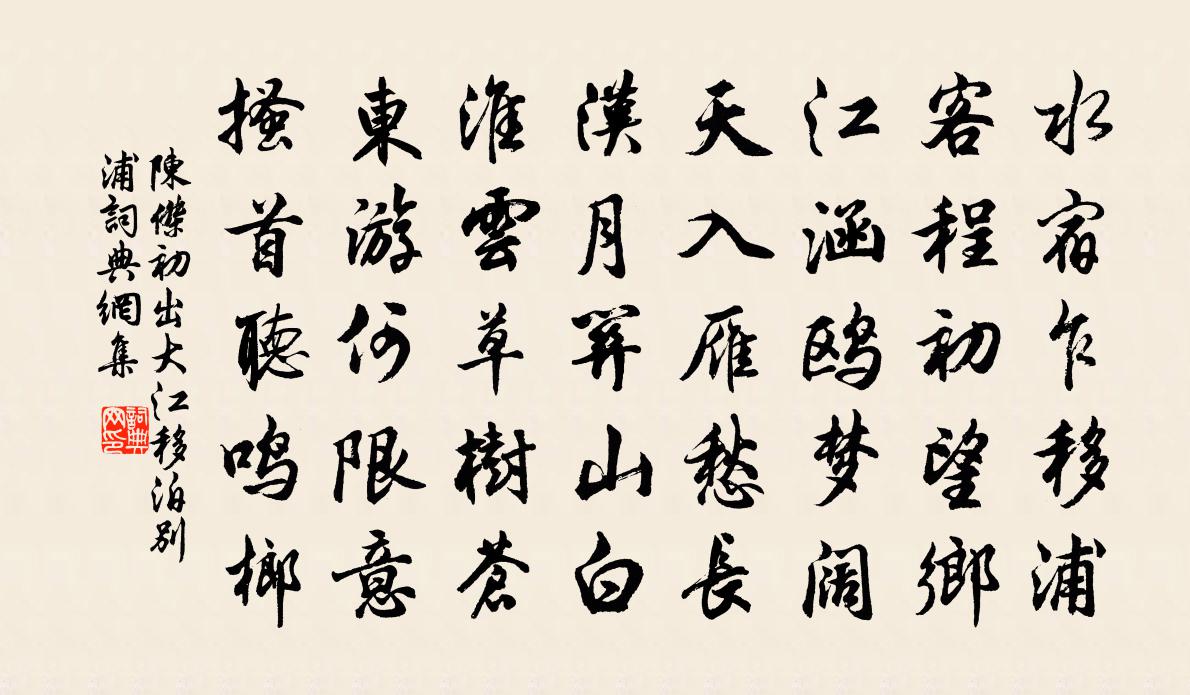 水宿乍移浦
客程初望鄉
江涵鸥梦阔
天入雁愁長
漢月關山白
淮雲草樹蒼
東游何限意
搔首聽鳴榔
陳傑初出大江移泊別
浦詞典網集
詞典
网印